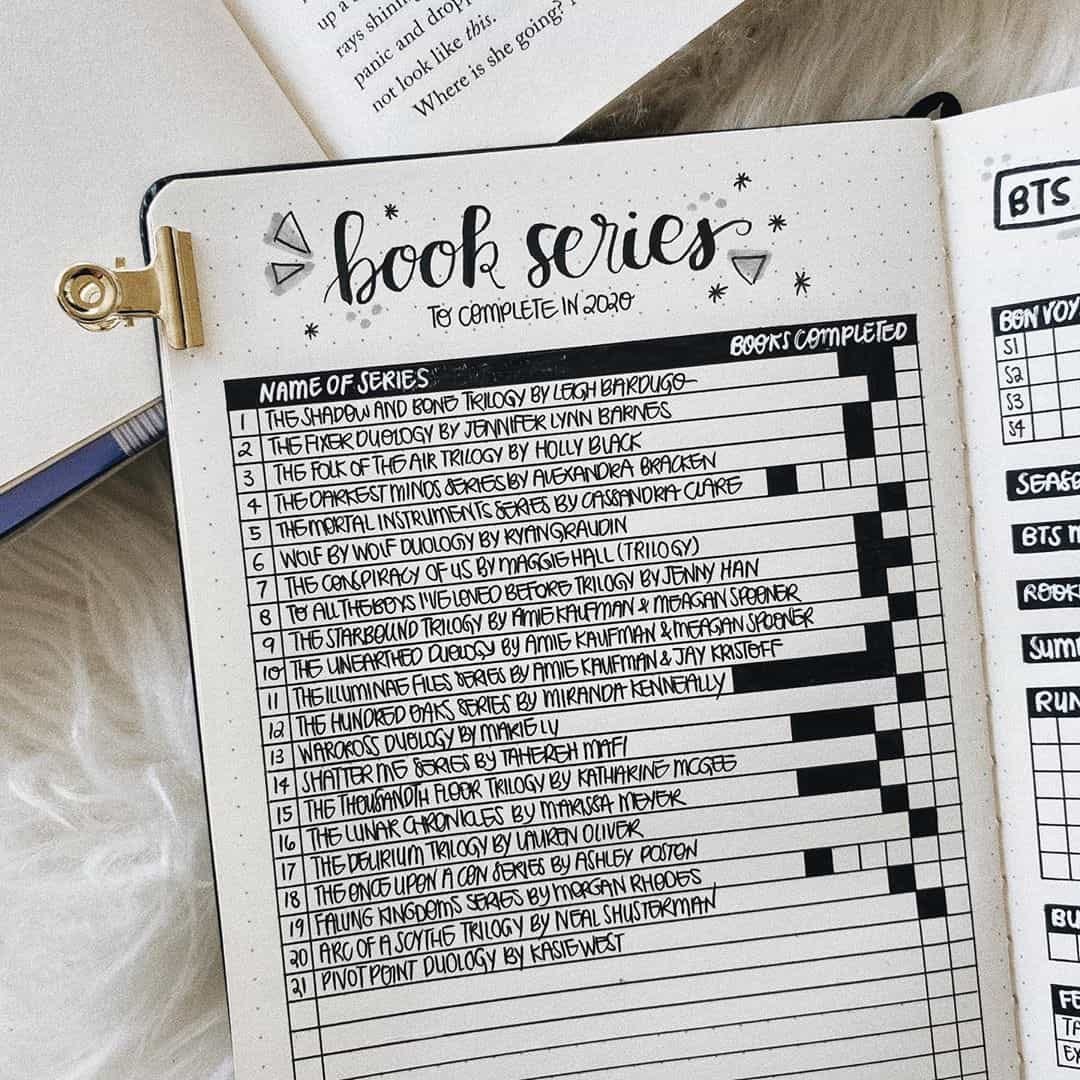 up a
rays shining
panic and dropp
not look like this.
Where is she going?
book series
TO COMPLETE IN 2020
NAME OF SERIES BOOKS COMPLETED
1 THE SHADOW AND BONE TRILOGY BY LEIGH BARDUGO
2 THE FIXER DUOLOGY BY JENNIFER LYNN BARNES
3 THE FOLK OF THE AIR TRILOGY BY HOLLY BLACK
4 THE DARKEST MINDS SERIES BY ALEXANDRA BRACKEN
5 THE MORTAL INSTRUMENTS SERIES BY CASSANDRA CLARE
6 WOLF BY WOLF DUOLOGY BY RYAN GRAUDIN
7 THE CONSPIRACY OF US BY MAGGIE HALL (TRILOGY)
8 TO ALL THE BOYS I'VE LOVED BEFORE TRILOGY BY JENNY HAN
9 THE STARBOUND TRILOGY BY AMIE KAUFMAN & MEAGAN SPOONER
10 THE UNEARTHED DUOLOGY BY AMIE KAUFMAN & MEAGAN SPOONER
11 THE ILLUMINAE FILES SERIES BY AMIE KAUFMAN & JAY KRISTOFF
12 THE HUNDRED OAKS SERIES BY MIRANDA KENNEALLY
13 WARCROSS DUOLOGY BY MARIE LU
14 SHATTER ME SERIES BY TAHEREH MAFI
15 THE THOUSANDTH FLOOR TRILOGY BY KATHARINE MCGEE
16 THE LUNAR CHRONICLES BY MARISSA MEYER
17 THE DELIRIUM TRILOGY BY LAUREN OLIVER
18 THE ONCE UPON A CON SERIES BY ASHLEY POSTON
19 FALLING KINGDOMS SERIES BY MORGAN RHODES
20 ARC OF A SCYTHE TRILOGY BY NEAL SHUSTERMAN
21 PIVOT POINT DUOLOGY BY KASIE WEST
BTS
BON VOY
S1
S2
S3
S4
SEASO
BTS
ROOK
SUMM
RUN
BU
FE
TA
EX